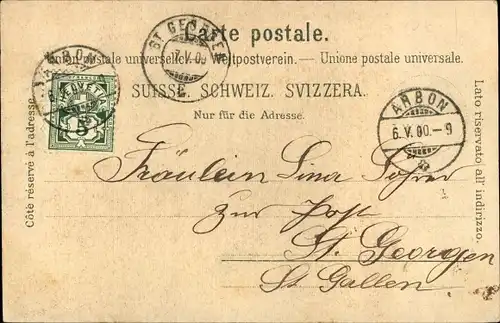 Carte postale.
Union postale universelle. Weltpostverein. — Unione postale universale.
SUISSE. SCHWEIZ. SVIZZERA.
Nur für die Adresse.
Côté réservé à l'adresse.
Lato riservato all' indirizzo.
ARBON
5
ST. GEORGEN
7.V.00
ARBON
6.V.00.-9
Fräulein Lina
zur Post
St. Georgen
St. Gallen